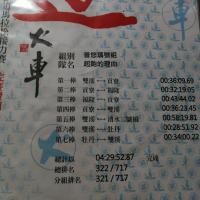 火車
組別 普悠瑪號組
隊名 起跑的理由
第一棒 雙溪 ─ 貢寮 00:36:09.69
第二棒 貢寮 ─ 福隆 00:32:19.05
第三棒 福隆 ─ 貢寮 00:43:44.02
第四棒 貢寮 ─ 雙溪 00:36:23.45
第五棒 雙溪 ─ 00:58:19.81
第六棒 ─ 牡丹 00:28:51.92
第七棒 牡丹 ─ 雙溪 00:34:00.22
總計時 04:29:52.87 完跑
總排名 322/717
分組排名 321/717